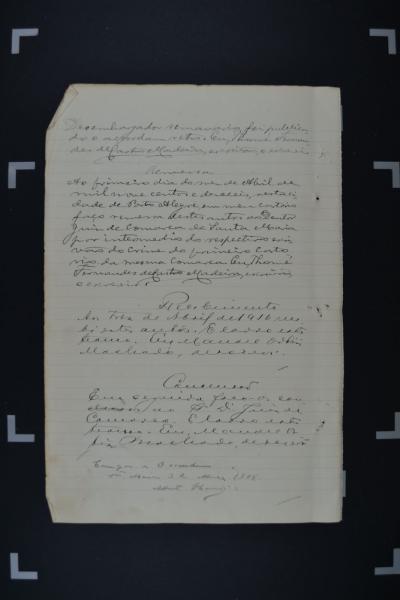 Desembargador semanario, foi publica-
do o accordam retro. Eu, Thomé Fernan-
des de Castro Madeira, escrivão, o escrevi.
Remessa
Ao primeiro dia do mez de Abril de
mil nove centos e dezeseis, nesta ci-
dade de Porto Alegre, em meu cartorio
faço remessa destes autos ao Doutor
Juiz de Comarca de Santa Maria
por intermedio do respectivo escri-
vão do crime do primeiro carto-
rio da mesma Comarca. Eu, Thomé
Fernandes de Castro Madeira, escrivão
o escrevi.
Recebimento
Aos tres de Abril de 1916 re-
cebi estes autos. E lavro este
termo. Eu, Manoel
Machado, escrevi.
Conclusão
Em seguida faço os con-
clusos ao Dr. Juiz de
Comarca. E lavro este
termo. Eu, Manoel
Machado, escrevi
Cumpra-se
3 de